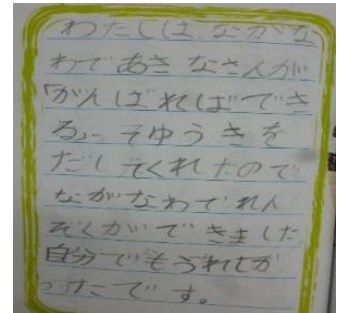 わたしは、ながな
わであきなさんが
「がんばればでき
る」ってゆうきを
だしてくれたので
ながなわでれん
ぞくができました
自分でもうれしか
ったです。